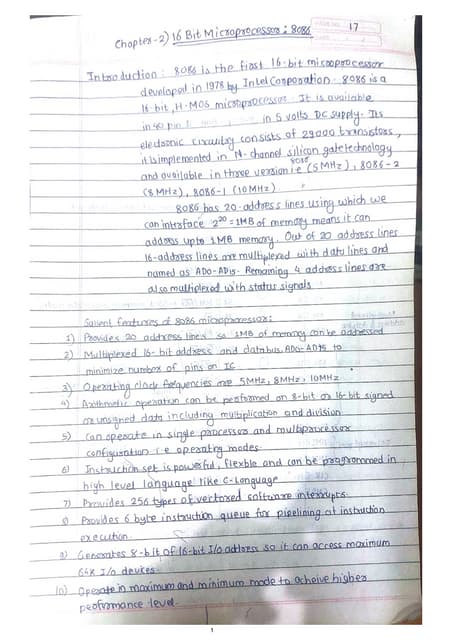 PAGE NO. 17
Chapter-2) 16 Bit Microprocessor: 8086
Introduction: 8086 is the first 16-bit microprocessor
developed in 1978 by Intel Corporation. 8086 is a
16-bit, H-MOS microprocessor. It is available
in 40 pin in 5 volts DC supply. Its
electronic circuitry consists of 29000 transistors,
it is implemented in N-channel silicon gate technology
and available in three version i.e 8086 (5MHz), 8086-2
(8MHz), 8086-1 (10MHz)
8086 has 20-address lines using which we
can intrface 2^20 = 1MB of memory means it can
address upto 1MB memory. Out of 20 address lines
16-address lines are multiplexed with data lines and
named as AD0-AD15. Remaining 4 address lines are
also multiplexed with status signals.
Salient features of 8086 microprocessor:
1) Provides 20 address lines so 1MB of memory can be addressed
2) Multiplexed 16-bit address and databus AD0-AD15 to
minimize number of pins on IC
3) Operating clock frequencies are 5MHz, 8MHz, 10MHz
4) Arithmetic operation can be performed on 8-bit or 16-bit signed
or unsigned data including multiplication and division
5) Can operate in single processor and multiprocessor
configuration i.e operating modes.
6) Instruction set is powerful, flexible and can be programmed in
high level language like C-Language
7) Provides 256 types of vectored software interrupts.
8) Provides 6 byte instruction queue for pipelining at instruction
execution.
9) Generates 8-bit of 16-bit I/o address so it can access maximum
64k I/o devices.
10) Operate in maximum and minimum mode to acheive higher
performance level.
1